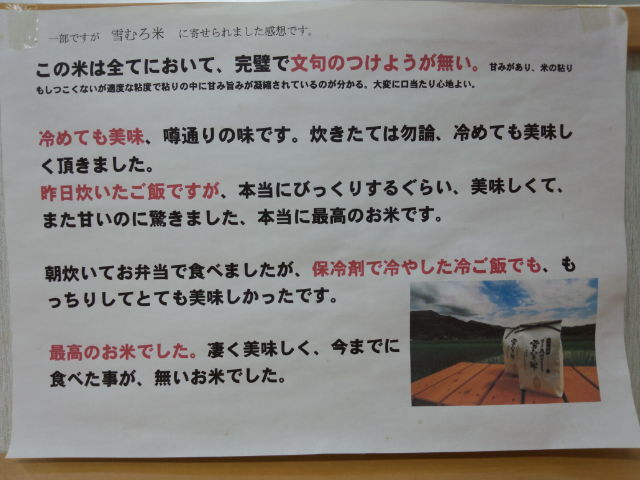 一部ですが 雪むろ米 に寄せられました感想です。
この米は全てにおいて、完璧で文句のつけようが無い。甘みがあり、米の粘り
もしつこくないが適度な粘度で粘りの中に甘み旨みが凝縮されているのが分かる。大変に口当たり心地よい。
冷めても美味、噂通りの味です。炊きたては勿論、冷めても美味し
く頂きました。
昨日炊いたご飯ですが、本当にびっくりするぐらい、美味しくて、
また甘いのに驚きました、本当に最高のお米です。
朝炊いてお弁当で食べましたが、保冷剤で冷やした冷ご飯でも、も
っちりしてとても美味しかったです。
最高のお米でした。凄く美味しく、今までに
食べた事が、無いお米でした。